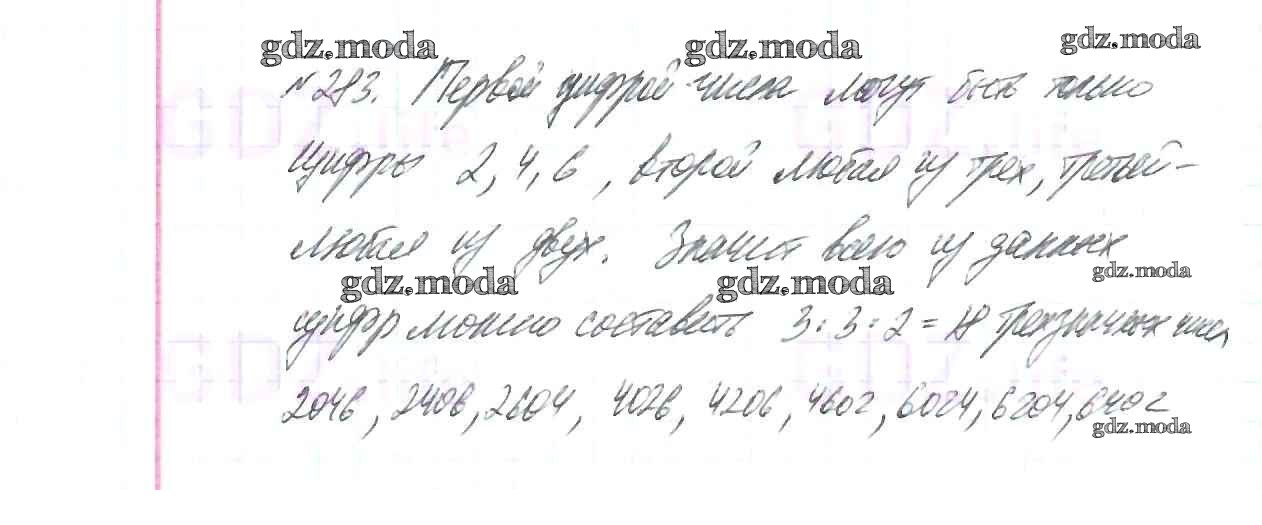 gdz.moda gdz.moda gdz.moda
№283. Первой цифрой числа могут быть только
цифры 2, 4, 6, второй любая из трех, третьей –
любая из двух. Значит всего из данных
gdz.moda gdz.moda gdz.moda
цифр можно составить 3 : 3 : 2 = 18 трехзначных чисел
2046, 2406, 2604, 4026, 4206, 4602, 6024, 6204, 6402
gdz.moda